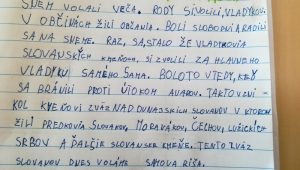 SNEM VOLALI VEČA. RODY SI VOLILI, VLADYKOV.
V OBČINÁCH ŽILI OBČANIA. BOLI SLOBODNÍ A RADILI
SA NA SNEME. RAZ, SA STALO ŽE VLADYKOVIA
SLOVANSKÝCH KMEŇOV, SI ZVOLILI ZA HLAVNÉHO
VLADYKU SAMÉHO SAMA. BOLO TO VTEDY, KEĎ
SA BRÁNILI PROTI ÚTOKOM AVAROV. TAKTO VZNI-
KOL KMEŇOVÍ ZVÄZ NADDUNAJSKÝCH SLOVANOV V KTOROM
ŽILI PREDKOVIA SLOVÁKOV, MORAVANOV, ČECHOV, LUŽICKÍCH
SRBOV A ĎALŠIE SLOVANSKÉ KMEŇE. TENTO ZVÄZ
SLOVANOV DNES VOLÁME SAMOVA RÍŠA.